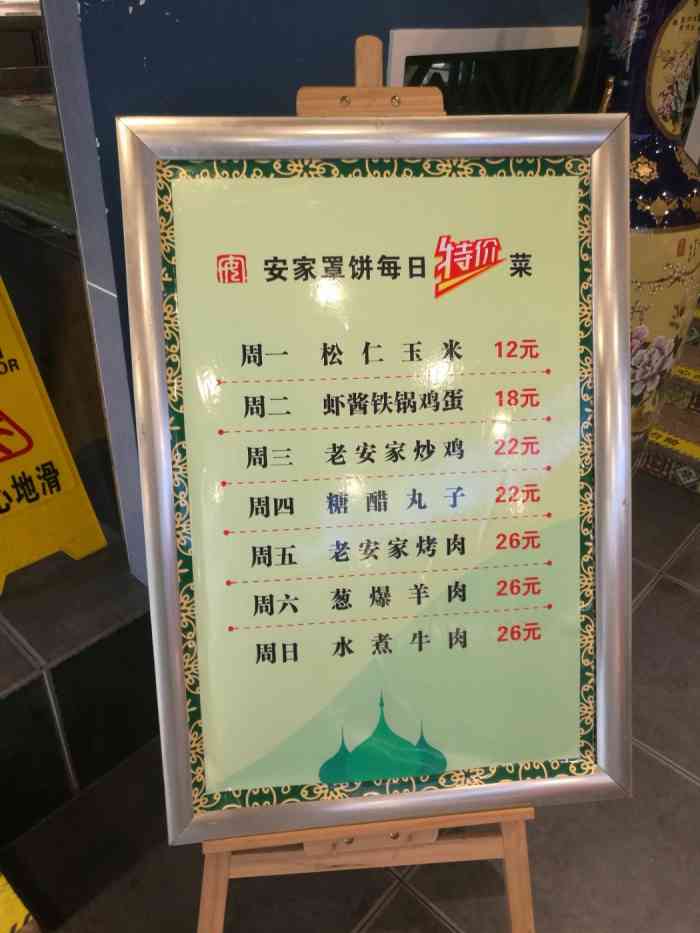 安家罩饼每日特价菜
周一 松仁玉米 12元
周二 虾酱铁锅鸡蛋 18元
周三 老安家炒鸡 22元
周四 糖醋丸子 22元
周五 老安家烤肉 26元
周六 葱爆羊肉 26元
周日 水煮牛肉 26元
OR
心地滑